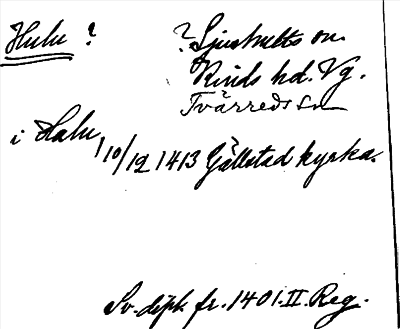 Hulu ? ? Ljushults sn.
Kinds hd. Vg.
Tvärreds sn
i Halu
1 10/12 1413 Gällstad kyrka.
Sv. dipl. fr. 1401. II. Reg.